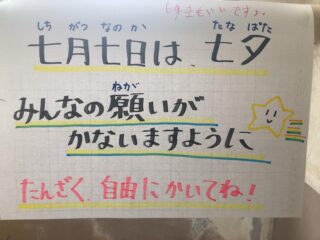 6年生もいいですよ。
しち がつ なのか たな ばた
七月七日は、七夕
ねが
みんなの願いが
かないますように
たんざく 自由にかいてね!